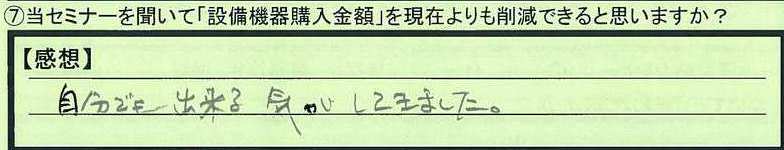 ⑦当セミナーを聞いて「設備機器購入金額」を現在よりも削減できると思いますか？
【感想】
自分でも出来る気がしてきました。